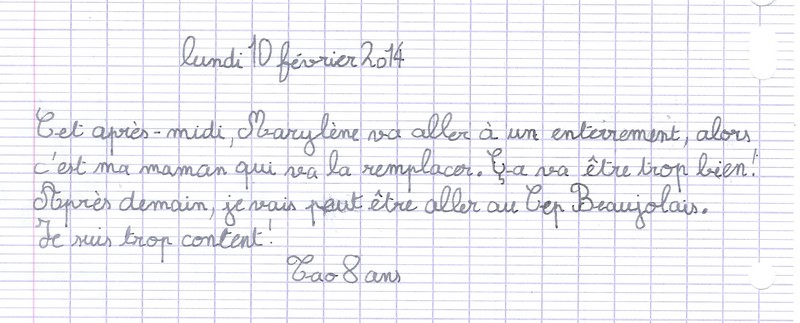 lundi 10 février 2014
Cet après-midi, Marylène va aller à un enterrement, alors
c'est ma maman qui va la remplacer. Ça va être trop bien!
Après demain, je vais peut être aller au Cep Beaujolais.
Je suis trop content!
Tao 8 ans